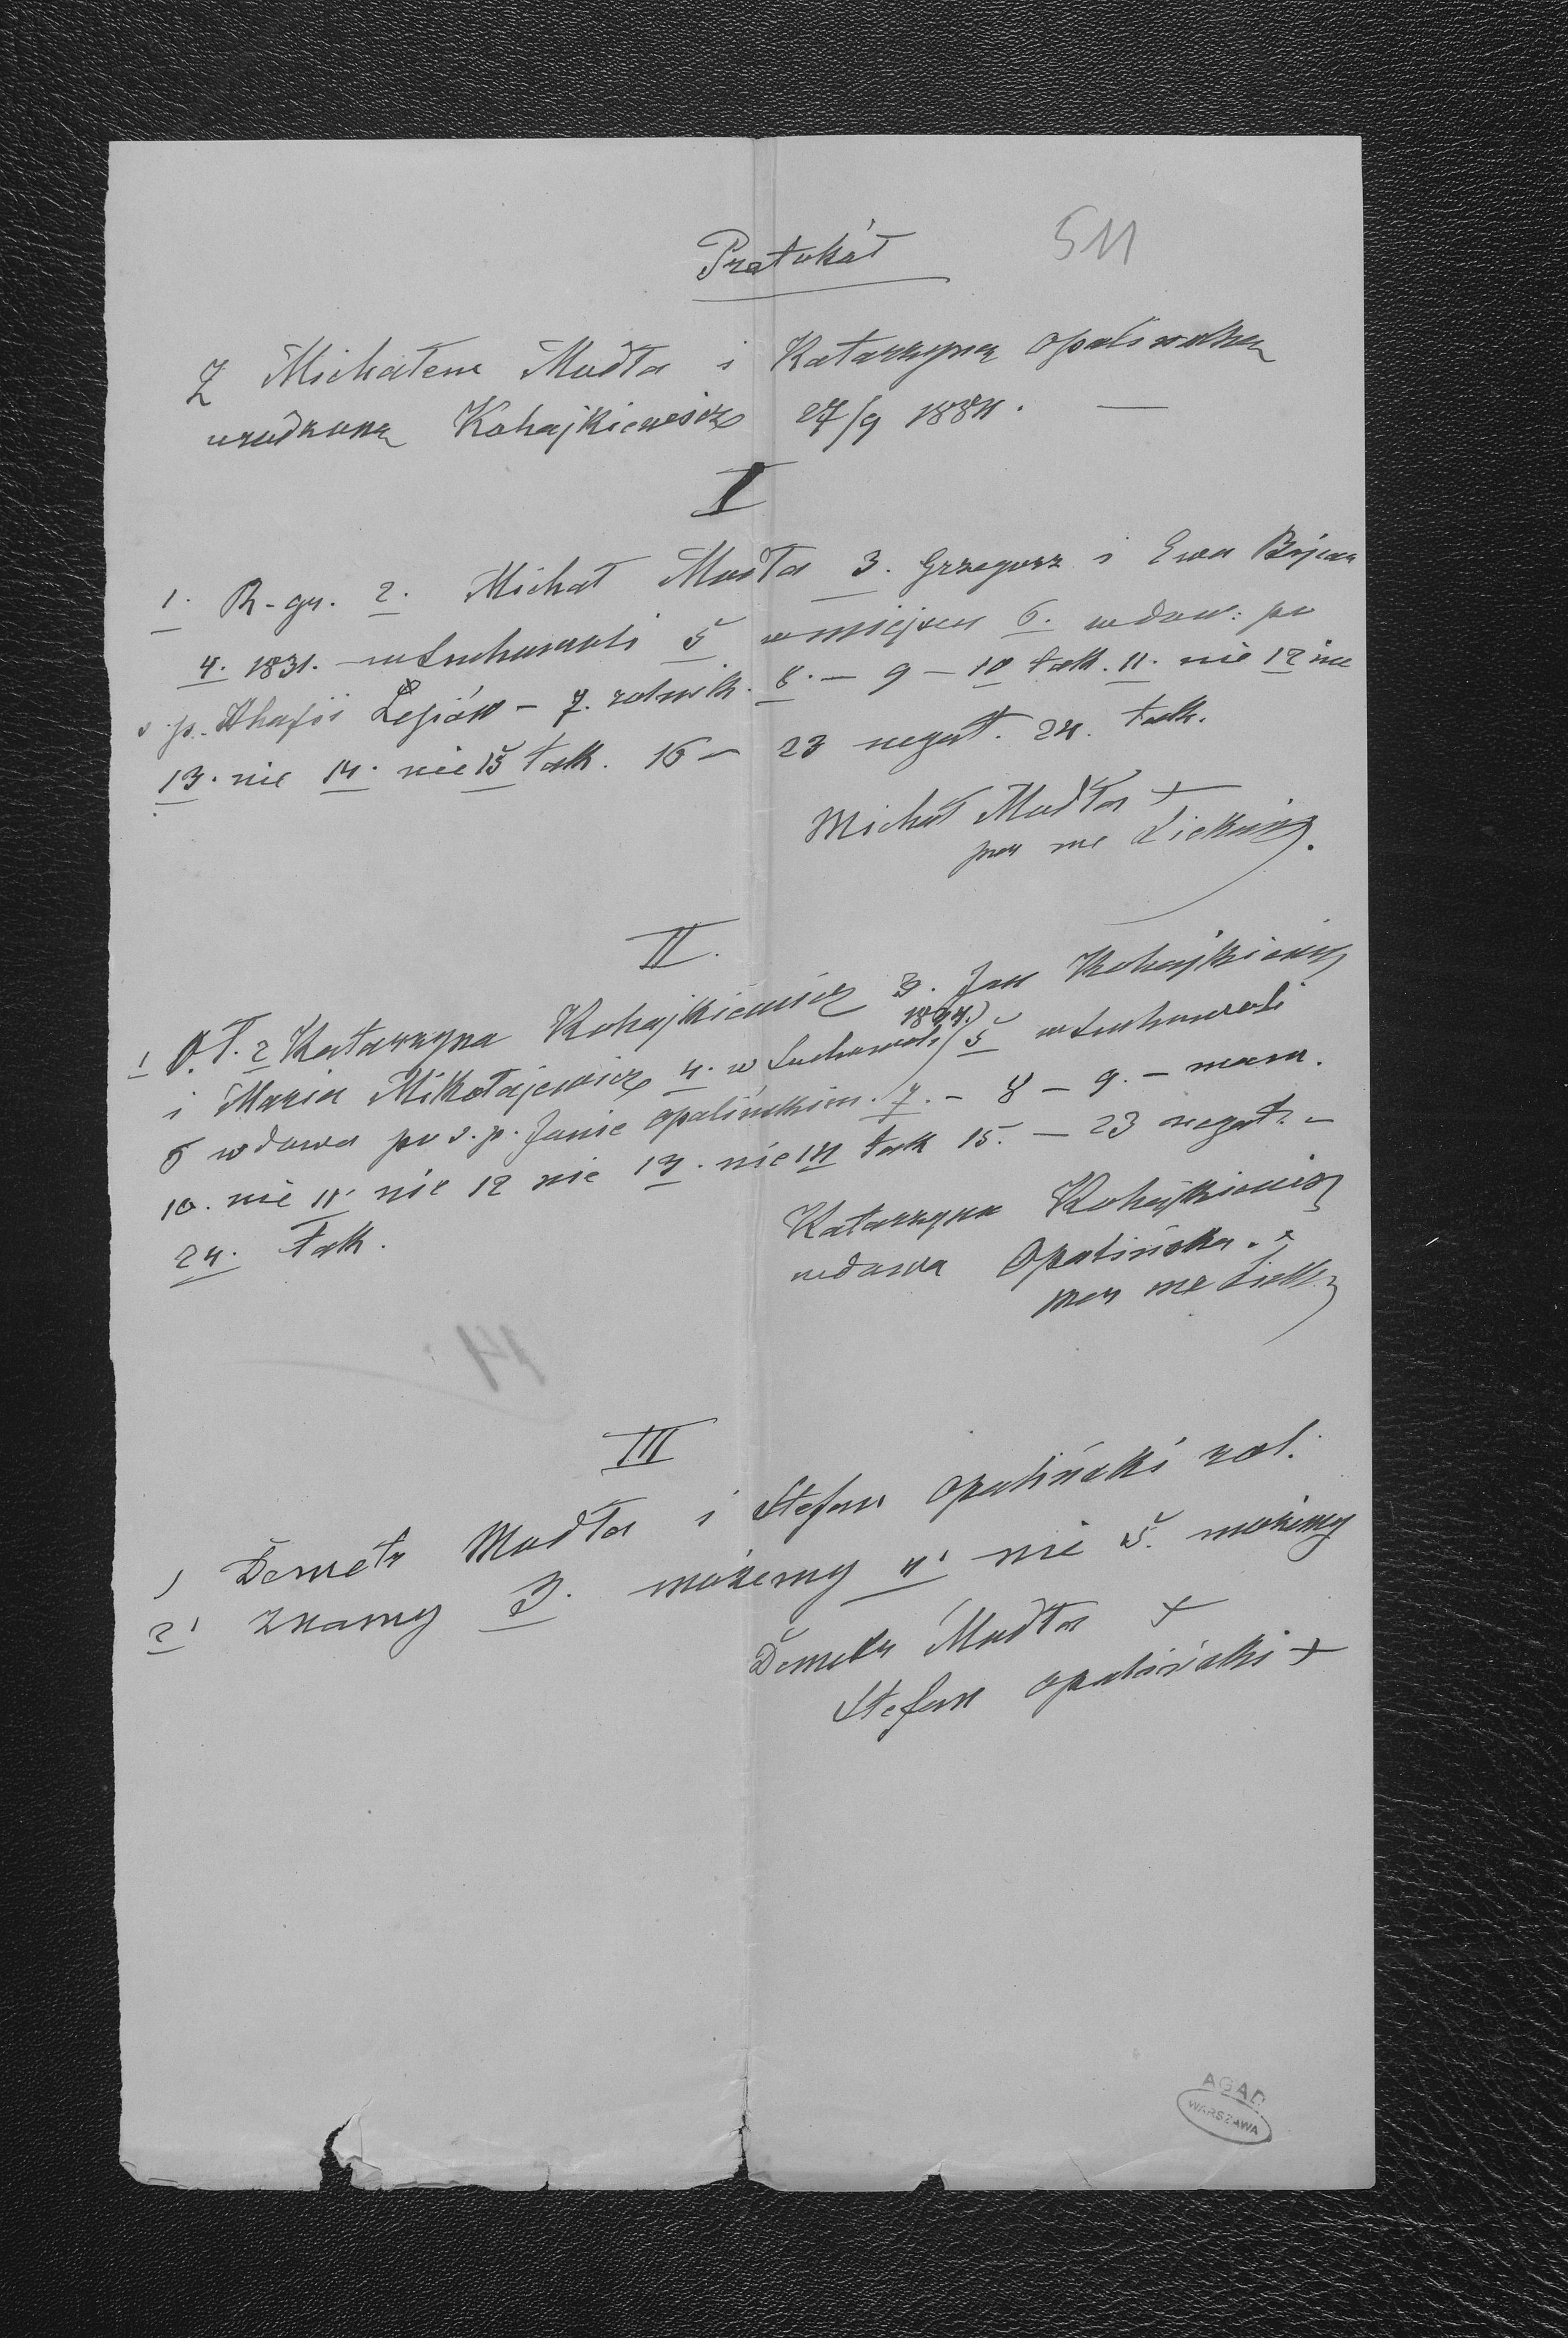 Protokół 511
Z Michałem Mudła i Katarzyną Opalińską
urodzoną Kohajkiewicz 27/9 1884. —
I
1. R-gr. 2. Michał Mudła 3. Grzegorz i Ewa
4. 1831. w Suchowoli 5 w miejscu 6. wdow: po
ś.p. Ahafii Lesiów – 7. rolnik. 8. – 9 – 10 tak. 11. nie 12 nie
13. nie 14. nie 15 tak. 16 – 23 negat. 24. tak.
Michał Mudła +
per me
II.
1 O.Ł. 2 Katarzyna Kohajkiewicz 3. Jan Kohajkiewicz
i Maria Mikołajewicz 4. w Suchowoli 5 w Suchowoli
6 wdowa po ś.p. Janie Opalińskim. 7. – 8 – 9. – mam.
10. nie 11. nie 12 nie 13. nie 14 tak 15. – 23 negat. –
24. tak.
Katarzyna Kohajkiewicz
wdowa Opalińska. +
per me
14
III
1 Demetr Mudła i Stefan Opaliński rol.
2. znamy 3. możemy 4. nie 5. możemy
Demetr Mudła +
Stefan Opaliński +
AGAD
WARSZAWA